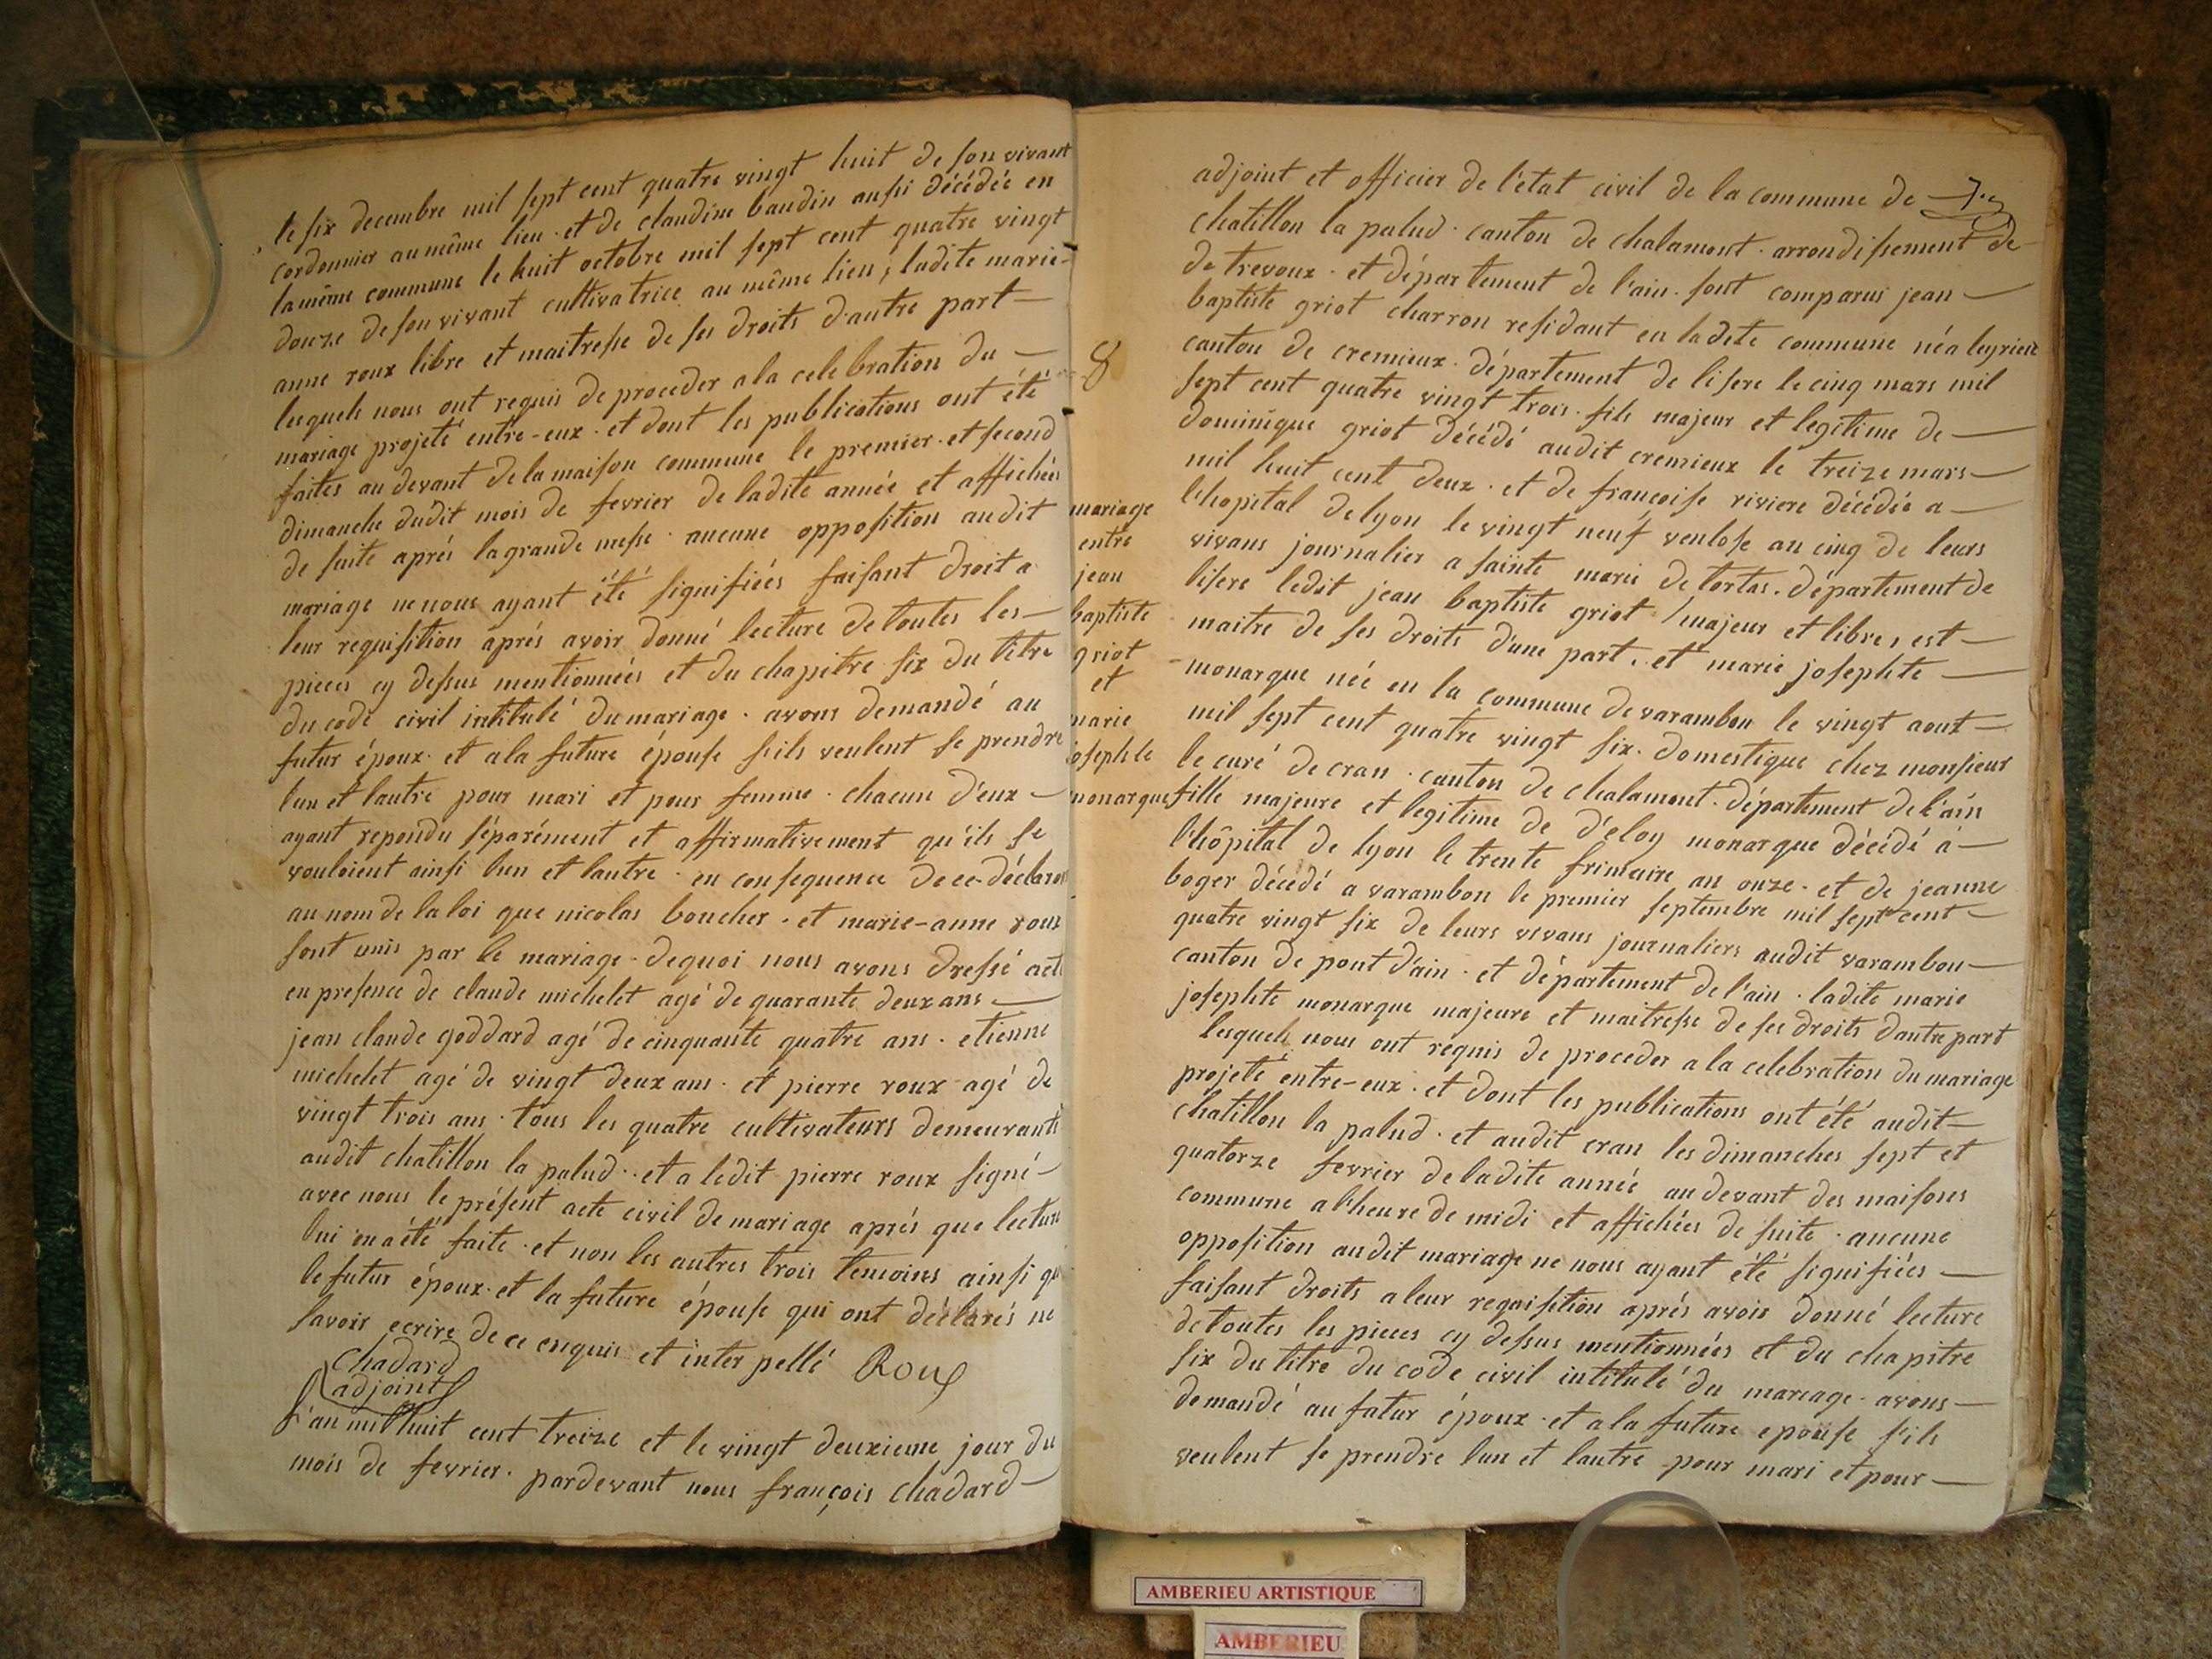 le six decembre mil sept cent quatre vingt huit de son vivant
cordonnier au même lieu. et de claudine baudin aussi décédée en
la même commune le huit octobre mil sept cent quatre vingt
douze de son vivant cultivatrice au même lieu; ladite marie-
anne roux libre et maitresse de ses droits d'autre part
lesquels nous ont requis de proceder a la celebration du
mariage projeté entre-eux. et dont les publications ont été
faites au devant de la maison commune le premier. et second
dimanche dudit mois de fevrier de ladite année et affichées
de suite aprés la grande messe. aucune opposition audit
mariage ne nous ayant été signifiées faisant droit a
leur requisition aprés avoir donné lecture de toutes les
pieces cy dessus mentionnées et du chapitre six du titre
du code civil intitulé du mariage. avons demandé au
futur époux. et a la future épouse s'ils veulent se prendre
l'un et lautre pour mari et pour femme. chacun d'eux
ayant repondu séparément et affirmativement qu'ils se
vouloient ainsi l'un et lautre. en consequence de ce déclarons
au nom de la loi que nicolas boucher. et marie-anne roux
sont unis par le mariage. dequoi nous avons dressé acte
en présence de claude michelet agé de quarante deux ans
jean claude goddard agé de cinquante quatre ans. etienne
michelet agé de vingt deux ans. et pierre roux agé de
vingt trois ans. tous les quatre cultivateurs demeurants
audit chatillon la palud. et a ledit pierre roux signé
avec nous le présent acte civil de mariage aprés que lecture
lui en a été faite. et non les autres trois temoins ainsi que
le futur époux. et la future épouse qui ont déclarés ne
savoir ecrire de ce enquis et interpellé Roux
chadard
adjoint
L'an mil huit cent treize et le vingt deuxieme jour du
mois de fevrier. pardevant nous françois chadard
8
mariage
entre
jean
baptiste
griot
et
marie
josephte
monarque
adjoint et officier de l'état civil de la commune de
chatillon la palud. canton de chalamont. arrondissement de
de trevoux. et département de l'ain. sont comparus jean
baptiste griot charron residant en ladite commune né a leyrieu
canton de cremieux. département de lisere le cinq mars mil
sept cent quatre vingt trois. fils majeur et legitime de
dominique griot décédé audit cremieux le treize mars
mil huit cent deux. et de françoise riviere décédée a
l'hopital de lyon le vingt neuf ventose an cinq de leurs
vivans journalier a sainte marie de tortas. département de
lisere ledit jean baptiste griot majeur et libre, est
maitre de ses droits d'une part. et marie josephte
monarque née en la commune de varambon le vingt aout
mil sept cent quatre vingt six. domestique chez monsieur
le curé de cran. canton de chalamont. département de l'ain
fille majeure et legitime de d'eloy monarque décédé à
l'hôpital de lyon le trente frimaire an onze. et de jeanne
boger décédé a varambon le premier septembre mil sept cent
quatre vingt six de leurs vivans journaliers audit varambon
canton de pont d'ain. et département de l'ain. ladite marie
josephte monarque majeure et maitresse de ses droits dautre part
lesquels nous ont requis de proceder a la celebration du mariage
projeté entre-eux. et dont les publications ont été audit
chatillon la palud. et audit cran les dimanches sept et
quatorze fevrier de ladite année au devant des maisons
commune a l'heure de midi et affichées de suite. aucune
opposition audit mariage ne nous ayant été signifiées
faisant droits a leur requisition aprés avoir donné lecture
de toutes les pieces cy dessus mentionnées et du chapitre
six du titre du code civil intitulé du mariage. avons
demandé au futur époux. et a la future epouse s'ils
veulent se prendre l'un et lautre pour mari et pour
AMBERIEU ARTISTIQUE
AMBERIEU